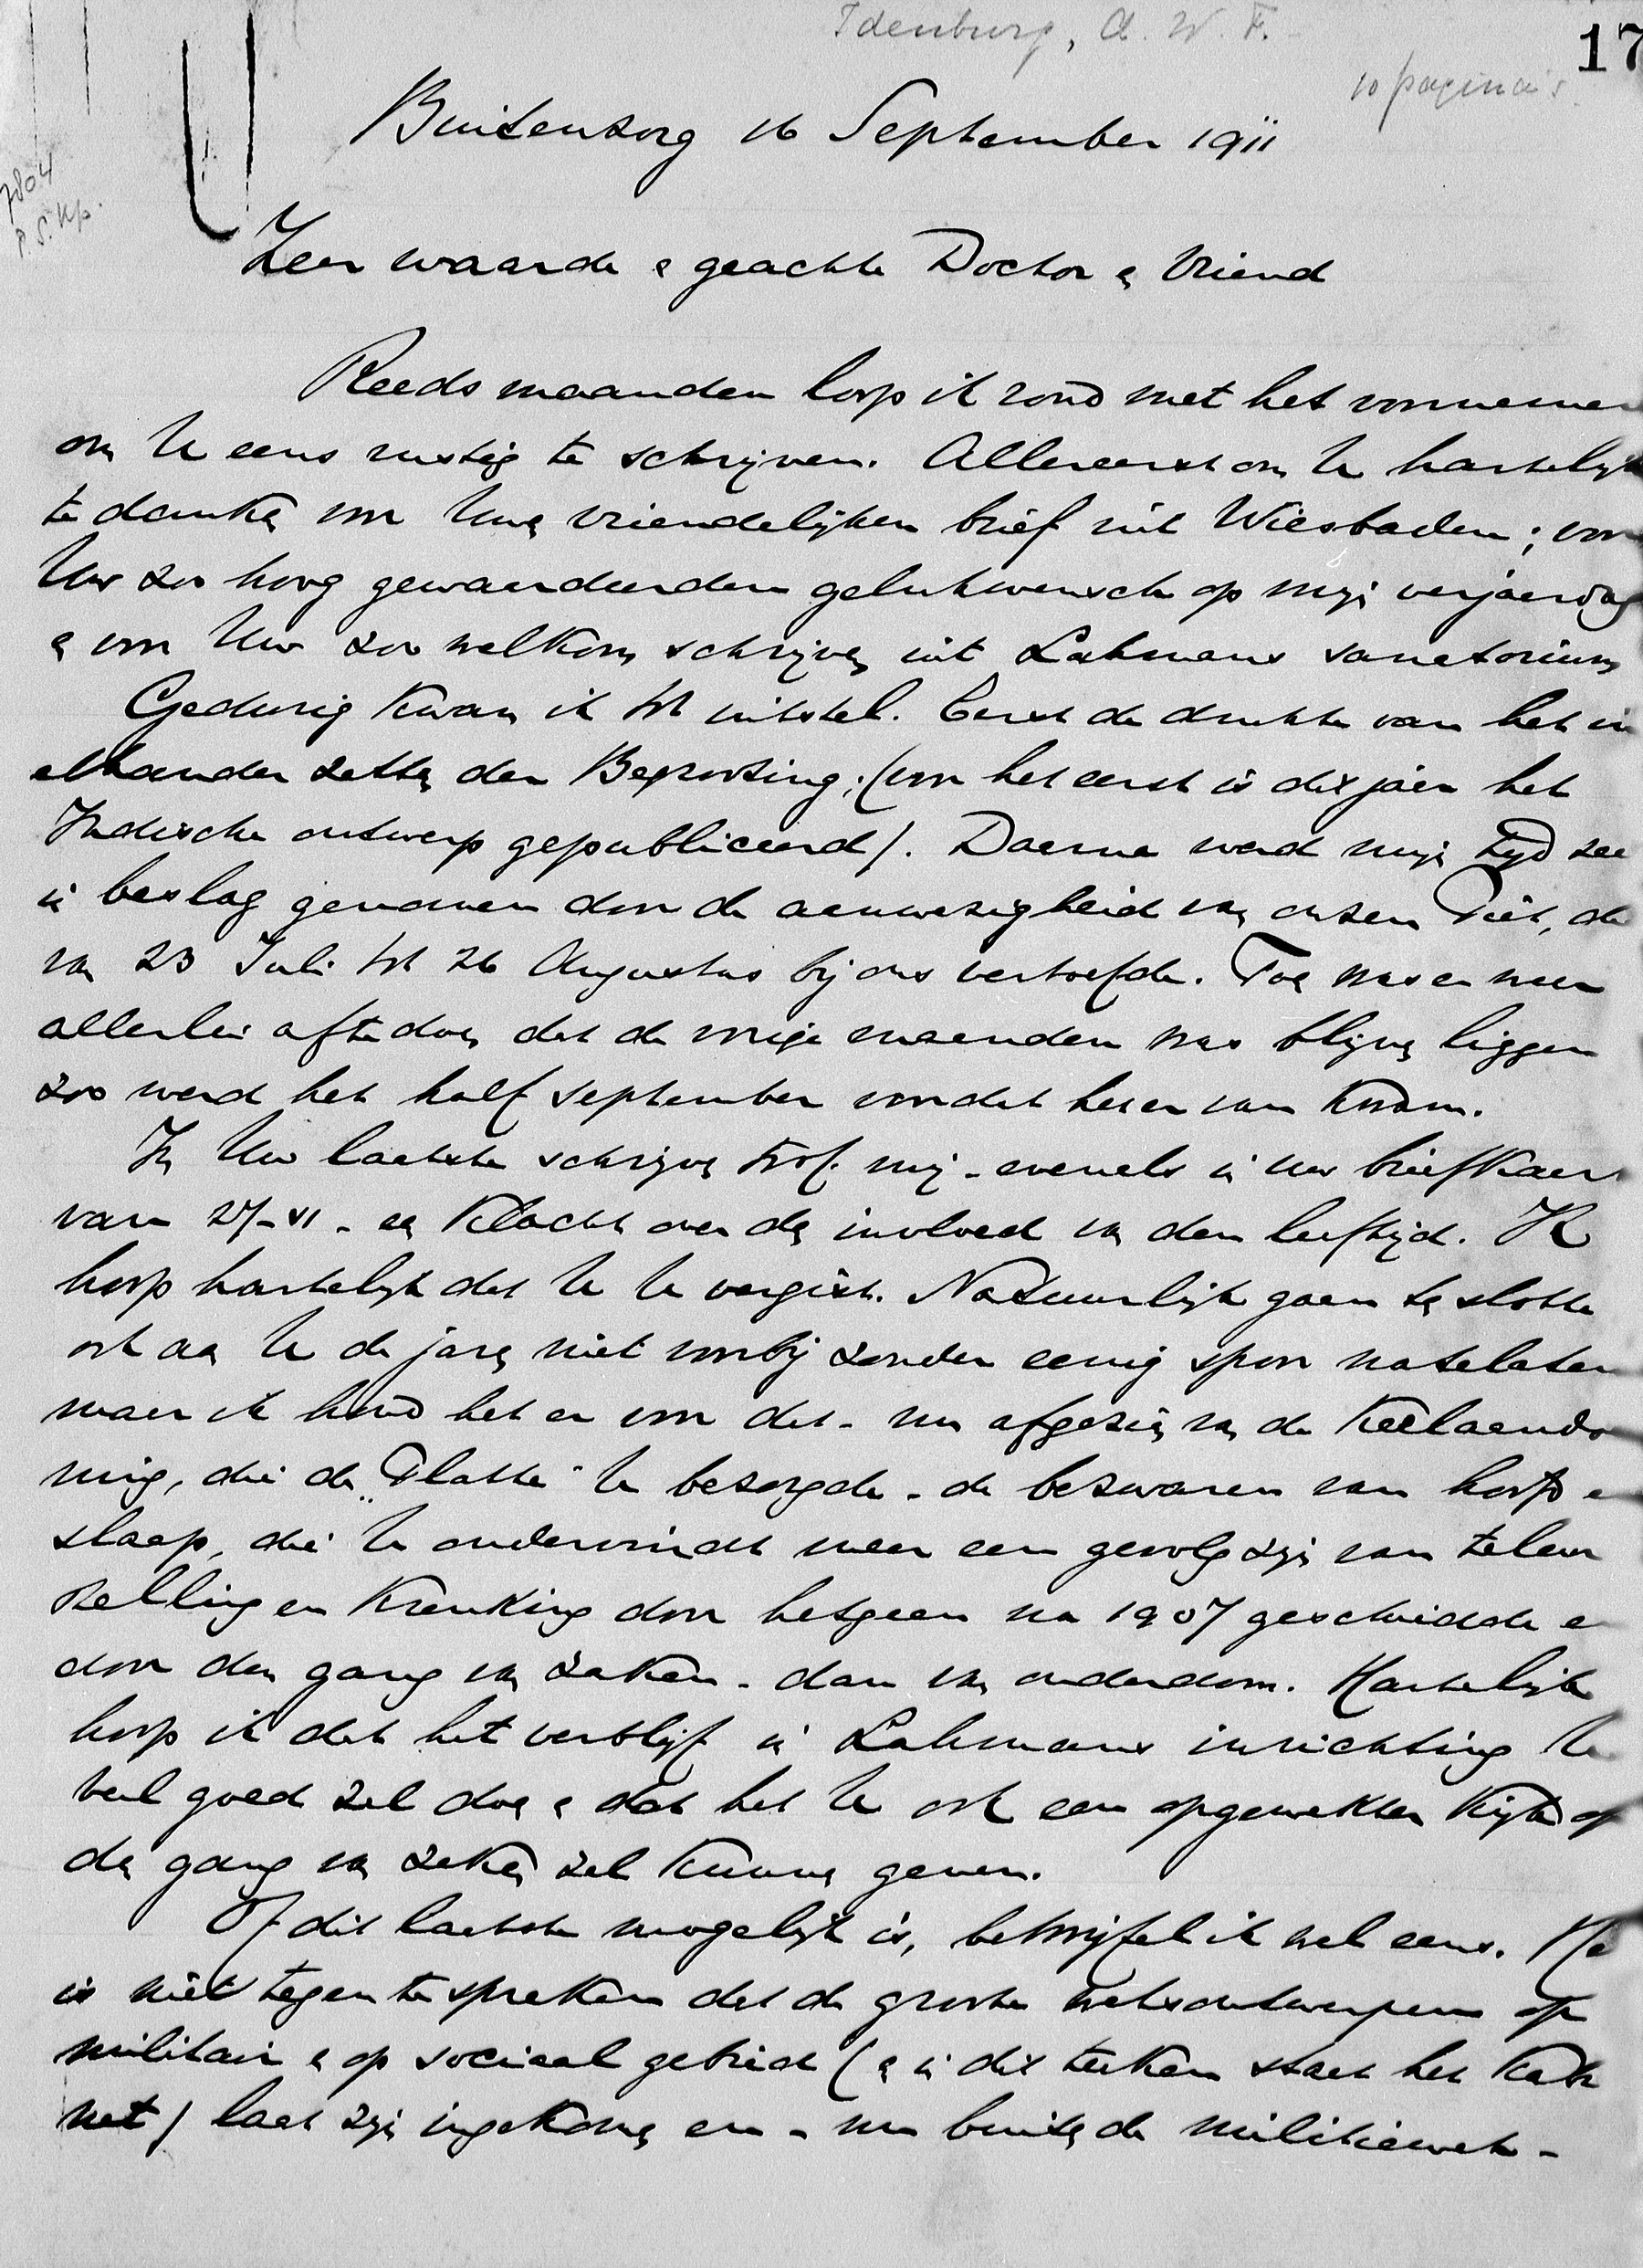 Idenburg, A. W. F.
17
10 pagina's
7804
P.S. Kp.
Buitenzorg 16 September 1911
Zeer waarde & geachte Doctor & Vriend
Reeds maanden loop ik rond met het voornemen
om U eens rustig te schrijven. Allereerst om U hartelijk
te danken voor Uwen vriendelijken brief uit Wiesbaden; voor
Uw zoo hoog gewaardeerden gelukwensch op mijn verjaardag
& voor Uw zoo welkom schrijven uit Lahmans sanatorium
Gedurig kwam ik tot uitstel. Eerst de drukte van het in
elkander zetten der Begrooting; (voor het eerst is dit jaar het
Indische ontwerp gepubliceerd). Daarna werd mijn tijd zee
in beslag genomen door de aanwezigheid van onzen Piet, die
van 23 Juli tot 26 Augustus bij ons vertoefde. Toen was er weer
allerlei af te doen dat de vorige maanden was blijven liggen
zoo werd het half september voordat het er van kwam.
In Uw laatste schrijven trof mij - evenals in uw briefkaart
van 27-VI - een klacht over den invloed van den leeftijd. Ik
hoop hartelijk dat U U vergist. Natuurlijk gaan ten slotte
ook aan U de jaren niet voorbij zonder eenig spoor natelaten
maar ik houd het er voor dat - nu afgezien van de keelaando
ning, die de "Platte" U bezorgde - de bezwaren van hoofd en
slaap, die U ondervindt meer een gevolg zijn van teleur
stelling en krenking door hetgeen na 1907 geschiedde en
door den gang van zaken - dan van ouderdom. Hartelijk
hoop ik dat het verblijf in Lahmans inrichting U
veel goed zal doen & dat het U ook een opgewekten kijk op
den gang van zaken zal kunnen geven.
Of dit laatste mogelijk is, betwijfel ik wel eens. He
is niet tegen te spreken dat de groote wetsontwerpen op
militair & op sociaal gebied (& in dit teeken staat het Kabi
net) laat zijn ingekomen en - nu buiten de militiewet -